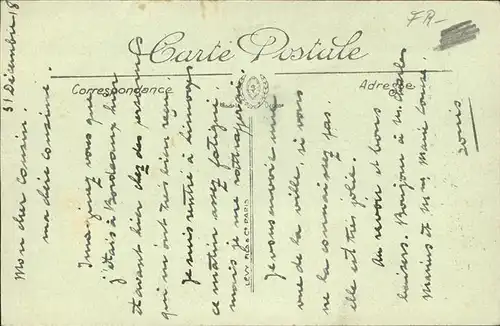 FR-
Carte Postale
Correspondance
Adresse
LEVY FILS & Cie PARIS
31 Décembre 18
Mon cher Cousin.
ma chère Cousine.
Imaginez vous que
j'étais à Bordeaux hier
et avant hier chez des personnes
qui m'ont très bien reçu.
Je suis rentré à Limoges
ce matin assez fatigué.
mais je me rattraperai.
Je vous envoie une
vue de la ville, si vous
ne la connaissez pas.
elle est très jolie.
Au revoir et bons
baisers. Bonjour à M. Charles
et Mme Marie Louise.
Louis